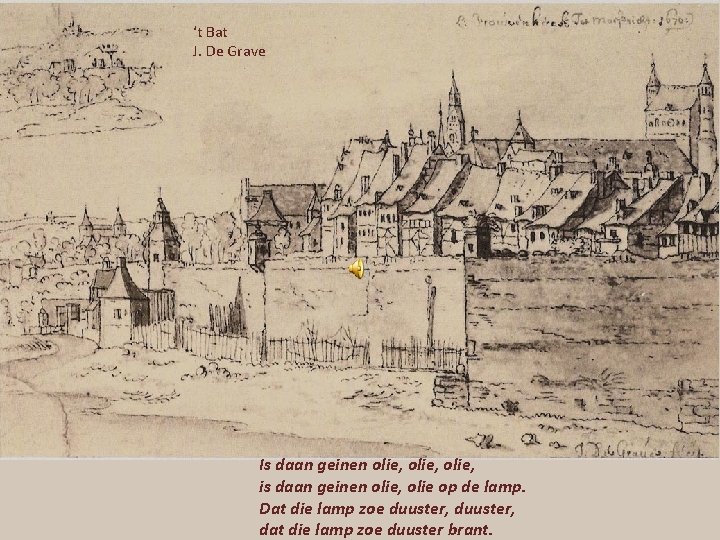 ‘t Bat
J. De Grave
Is daan geinen olie, olie, olie,
is daan geinen olie, olie op de lamp.
Dat die lamp zoe duuster, duuster,
dat die lamp zoe duuster brant.